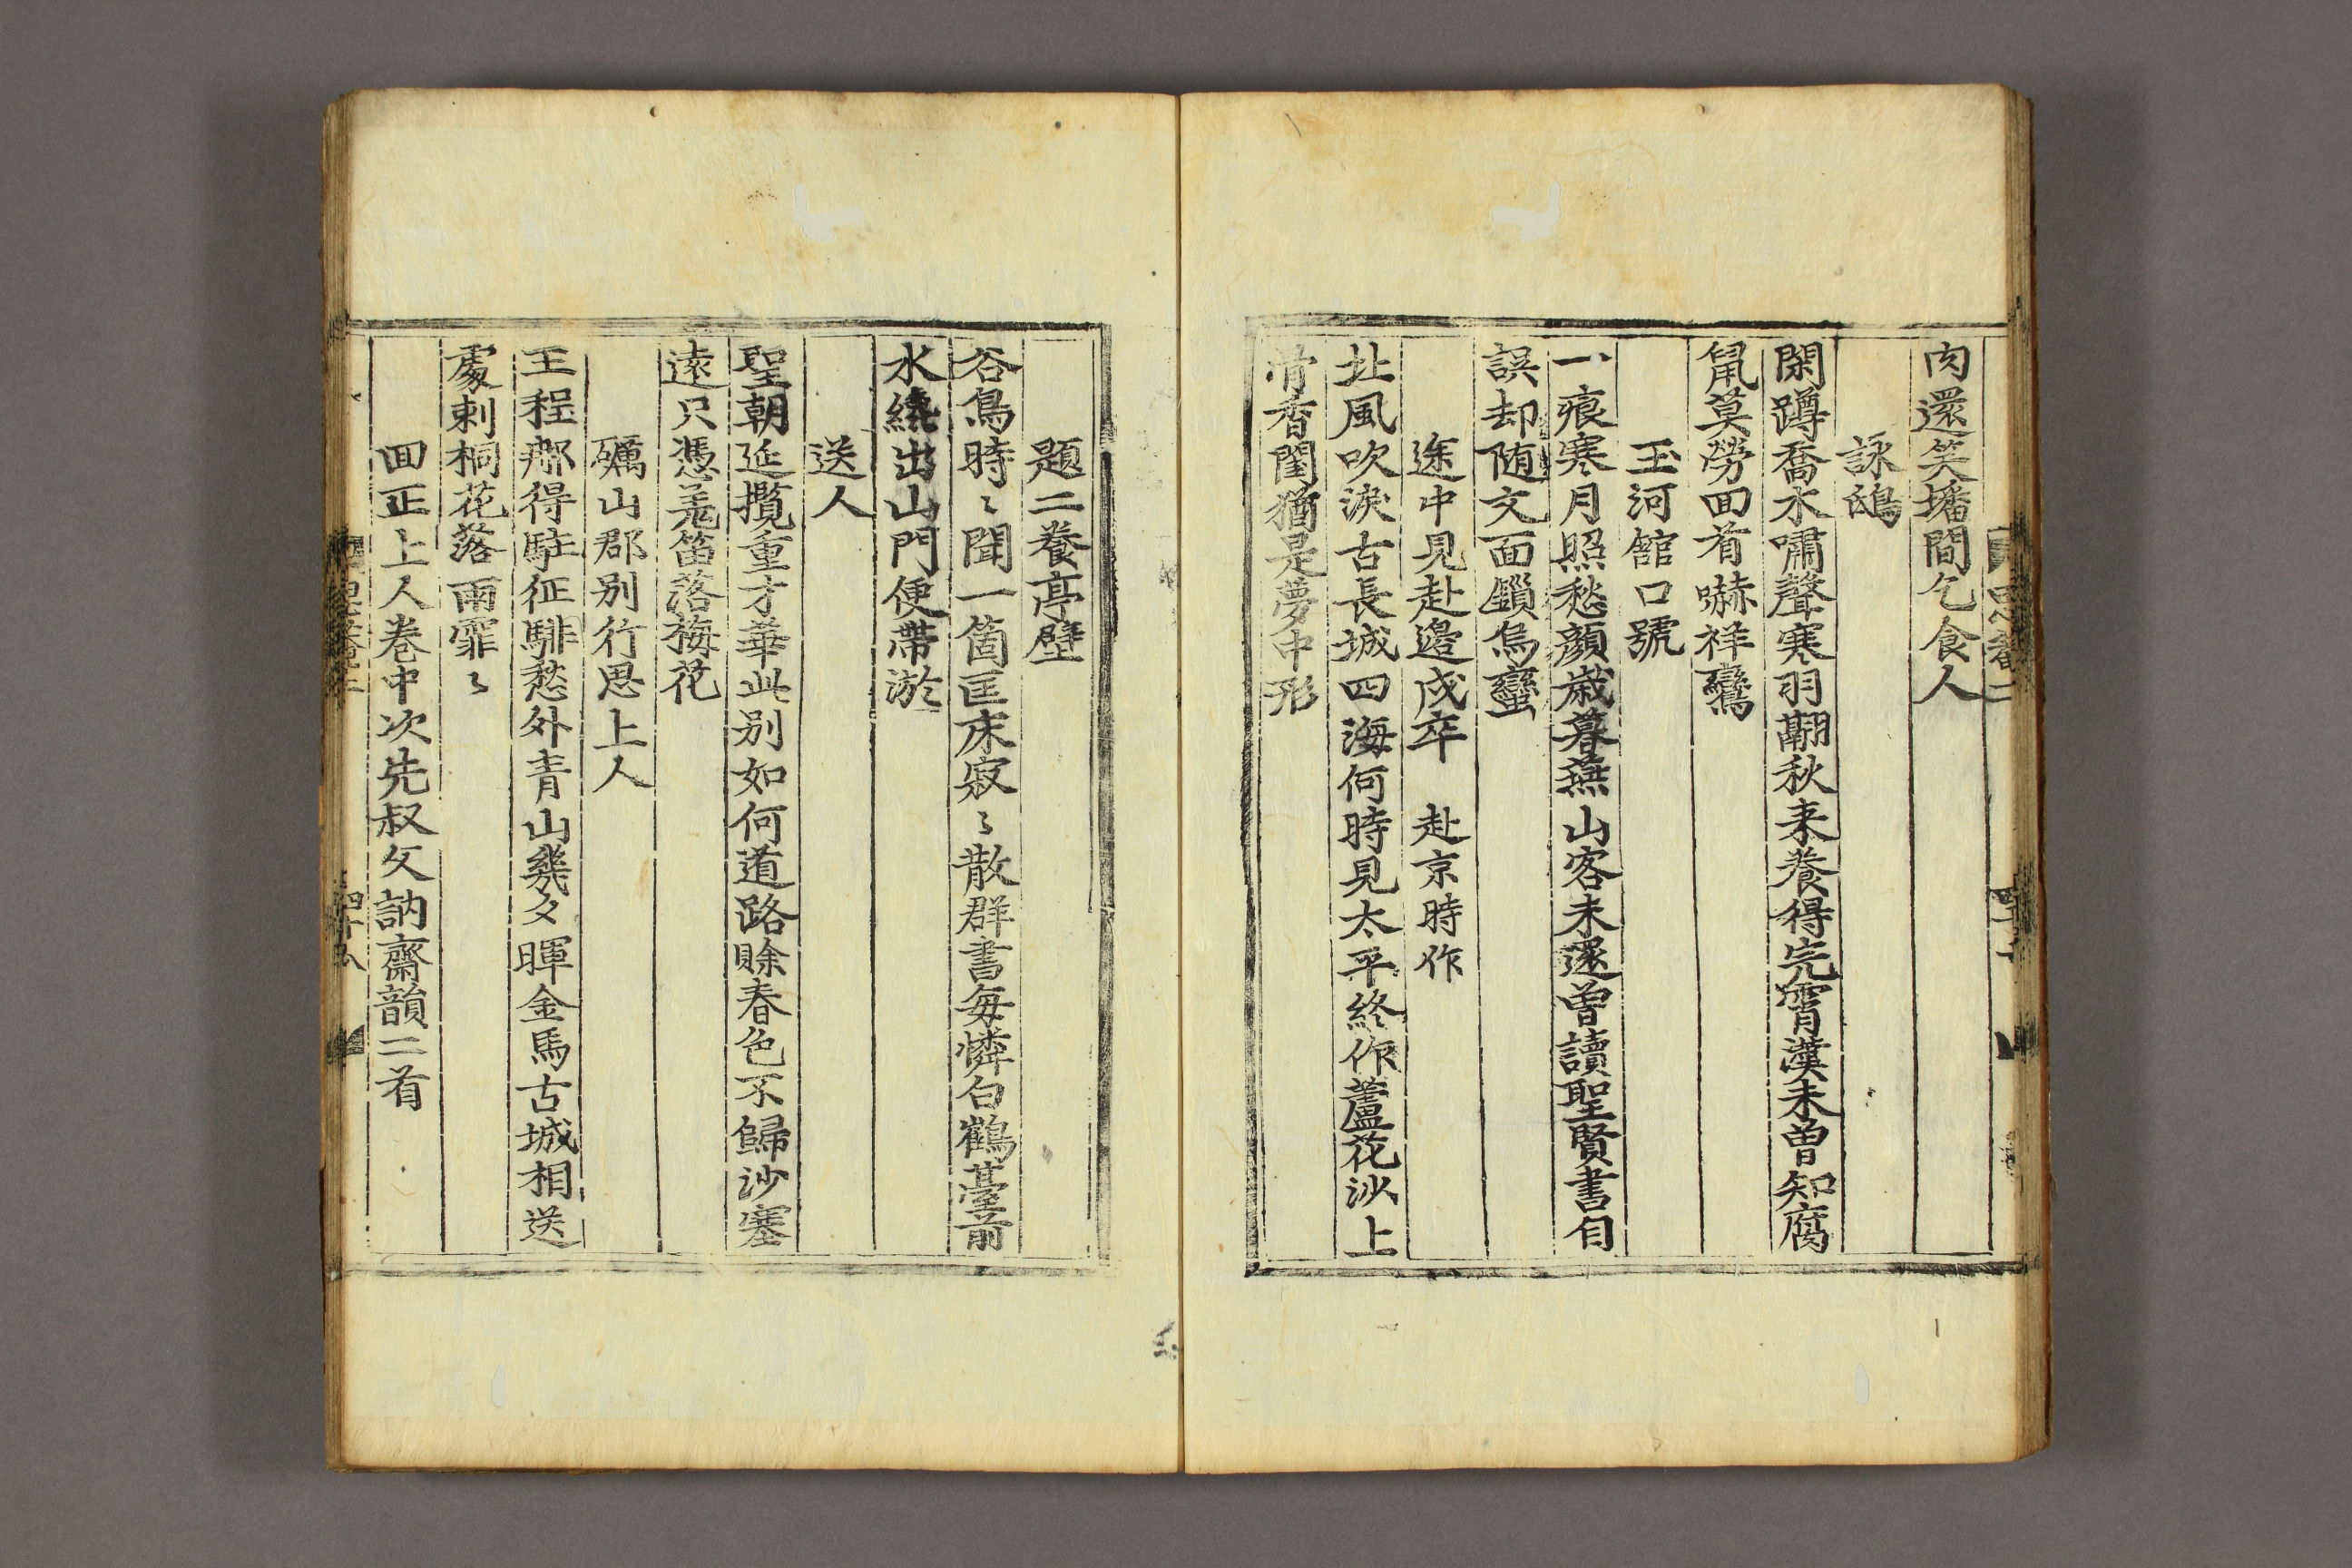 肉還笑墦間乞食人
詠鴟
閑蹲喬木嘯聲寒羽翮秋来養得完霄漢未曾知腐
䑕莫勞回首嚇祥鸞
玉河舘口號
一痕寒月照愁顔歲暮燕山客未還曾讀聖賢書自
誤却随文面鎻烏蠻
途中見赴邉戍卒 赴京時作
北風吹淚古長城四海何時見太平終作蘆花沙上
骨香閨猶是夢中形
題二養亭壁
谷鳥時〻聞一箇匡床寂〻散群書每憐白鶴臺前
水纔出山門便帶淤
送人
聖朝延攬重才華此別如何道路賖春色不歸沙塞
遠只憑羗笛落梅花
礪山郡別行思上人
王程那得駐征騑愁外青山幾夕暉金馬古城相送
處刺桐花落雨霏〻
回正上人卷中次先叔父訥齋韻二首